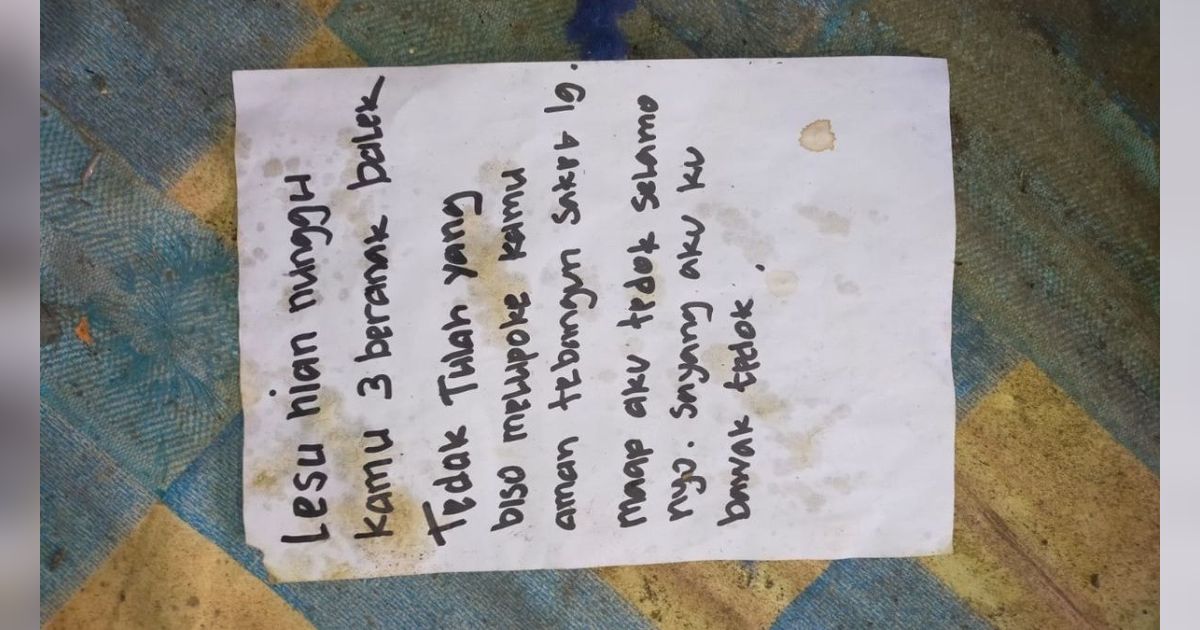 Lesu nian nunggu
kamu 3 beranak balek
Tedak Tulah yang
biso melupoke kamu
aman tebangun sakit lg.
maap aku tedok selamo
nyo. sayang aku ku
bawak tedok